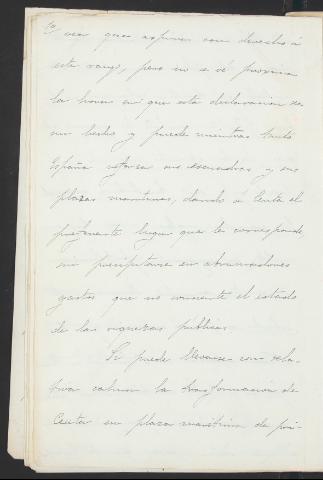 vea que aspiran con derecho á
este rango, pero no se vé proxima
la hora en que esta declaracion sea
un hecho y puede mientras tanto
España reforzar sus escuadras y sus
plazas maritimas, dando á Ceuta el
preferente lugar que le corresponde
sin precipitarse en abrumadores
gastos que no consiente el estado
de las riquezas publicas.
Si puede llevarse con rela-
tiva calma la transformación de
Ceuta en plaza maritima de pri-